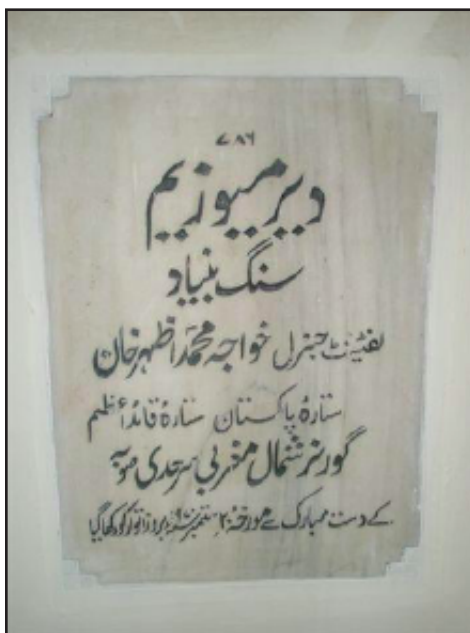 ۷۸۶
دیر میوزیم
سنگ بنیاد
لفٹیننٹ جنرل خواجہ محمد اظہر خان
ستارۂ پاکستان ستارۂ قائد اعظم
گورنر شمال مغربی سرحدی صوبہ
کے دست مبارک سے مورخہ ۲۰ ستمبر بروز اتوار کو رکھا گیا